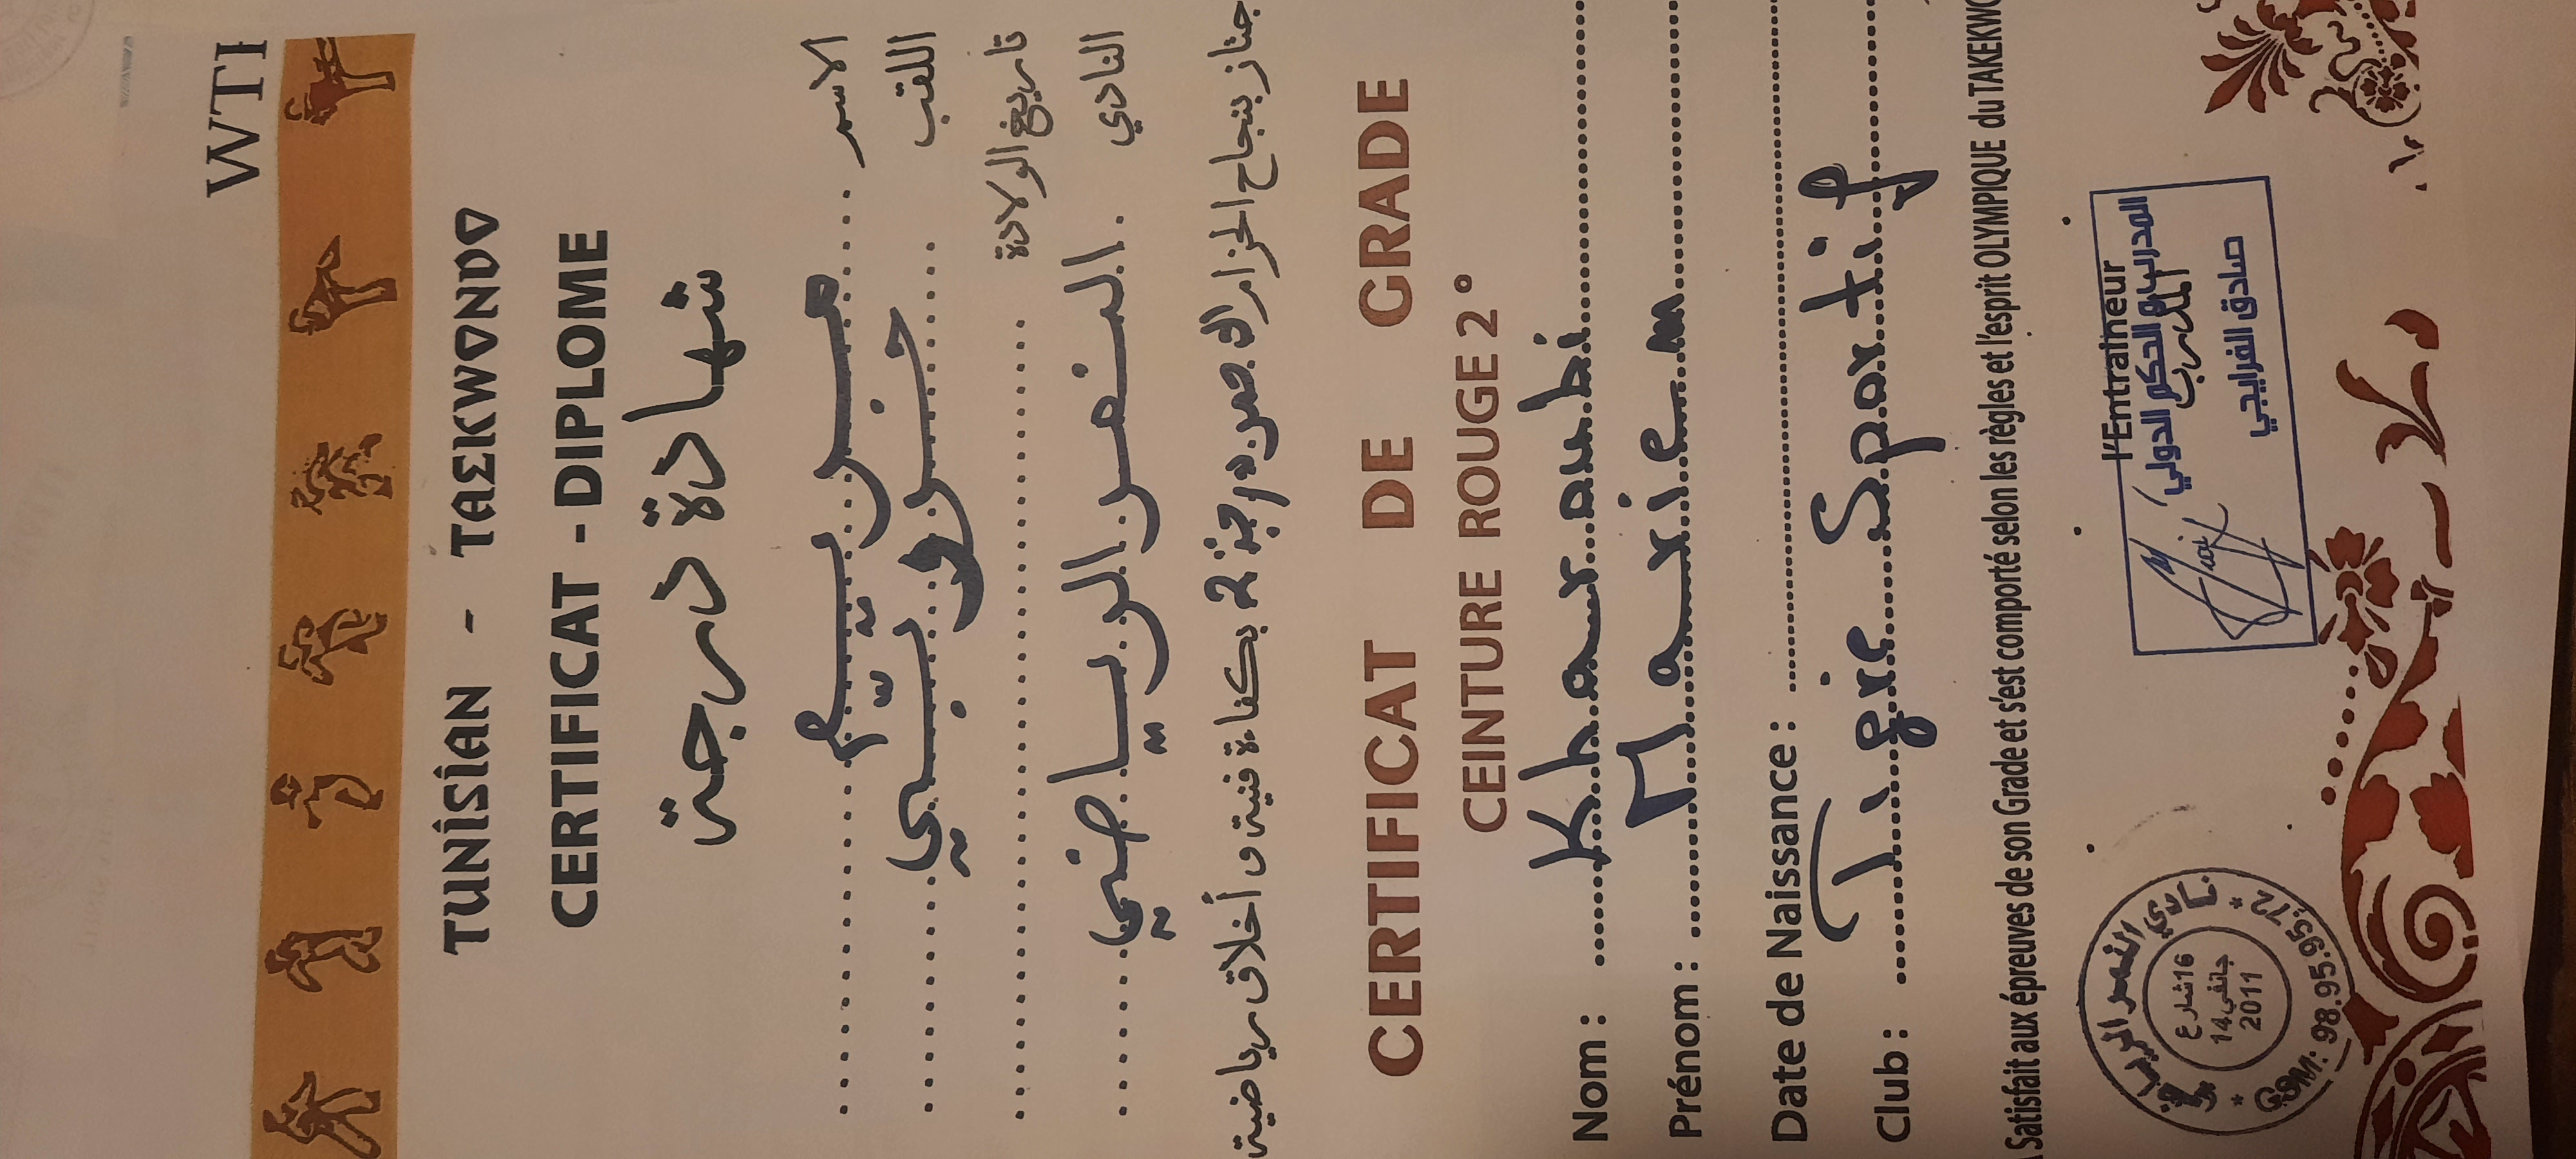 WTF
TUNISIAN - TAEKWONDO
CERTIFICAT - DIPLOME
شهادة درجة
الاسم مريم
اللقب خروبي
تاريخ الولادة
النادي النمر الرياضي
جتاز بنجاح الحزام الأحمر درجة 2 بكفاءة فنية و أخلاق رياضية
CERTIFICAT DE GRADE
CEINTURE ROUGE 2°
Nom : Kharoubi
Prénom : Mariem
Date de Naissance :
Club : Tigre Sportif
A Satisfait aux épreuves de son Grade et s'est comporté selon les règles et l'esprit OLYMPIQUE du TAKEKWO
l'Entraineur
المدرب
المدرب و الحكم الدولي
صادق الفرايجي
نادي النمر الرياضي
16 شارع
14 جانفي
2011
GSM: 98.95.95.72